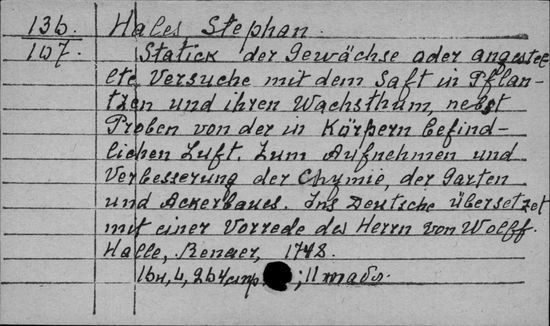 136. Hales Stephan.
107. Statick der Gewächse oder angestee
lte Versuche mit dem Saft in Pflan-
tzen und ihren Wachsthum, nebst
Proben von der in Körpern befind-
lichen Luft. Zum Aufnehmen und
Verbesserung der Chymie, der Garten
und Ackerbaues. Ins Deutsche übersetzet
mit einer Vorrede des Herrn von Wolff.
Halle, Renger, 1748.
16н, 4, 264 стр ; 11